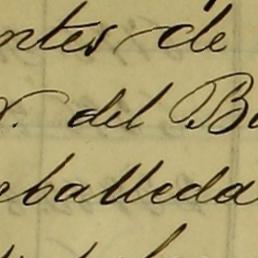 ntes de
del B
eballeda